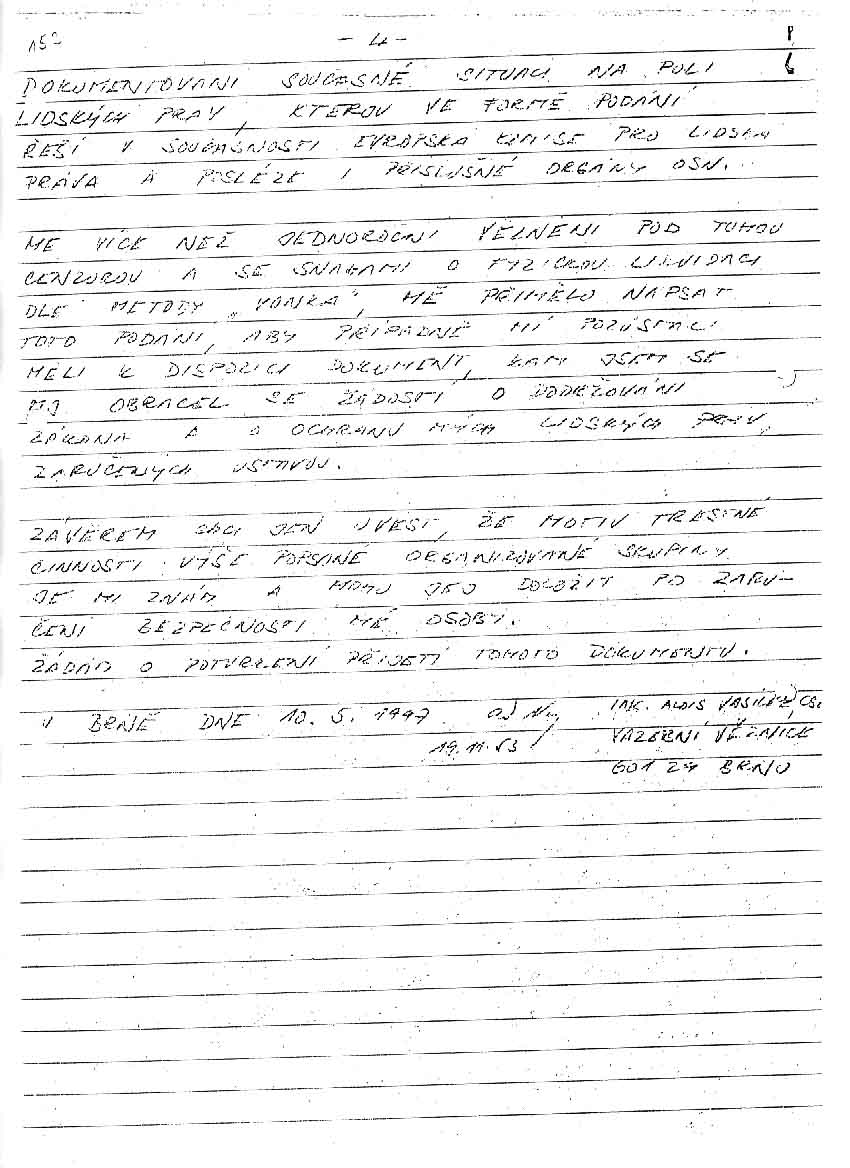 15?
- 4 -
P
6
DOKUMENTOVÁNÍ SOUČASNÉ SITUACI NA POLI
LIDSKÝCH PRÁV, KTEROU VE FORMĚ PODÁNÍ
ŘEŠÍ V SOUČASNOSTI EVROPSKÁ KOMISE PRO LIDSKÁ
PRÁVA A POSLÉZE I PŘÍSLUŠNÉ ORGÁNY OSN.
MÉ VÍCE NEŽ JEDNOROČNÍ VĚZNĚNÍ POD TUHOU
CENZUROU A SE SNAHAMI O FYZICKOU LIKVIDACI
DLE METODY „VONKA", MĚ PŘIMĚLO NAPSAT
TOTO PODÁNÍ, ABY PŘÍPADNĚ MÍ POZŮSTALÍ
MĚLI K DISPOZICI DOKUMENT, KAM JSEM SE
MJ. OBRACEL SE ŽÁDOSTÍ O DODRŽOVÁNÍ
ZÁKONA A O OCHRANU MÝCH LIDSKÝCH PRÁV,
ZARUČENÝCH ÚSTAVOU.
ZÁVĚREM CHCI JEN UVÉST, ŽE MOTIV TRESTNÉ
ČINNOSTI VÝŠE POPSANÉ ORGANIZOVANÉ SKUPINY
JE MI ZNÁM A MOHU JEJ DOLOŽIT PO ZARU-
ČENÍ BEZPEČNOSTI MÉ OSOBY.
ŽÁDÁM O POTVRZENÍ PŘIJETÍ TOHOTO DOKUMENTU.
V BRNĚ DNE 10. 5. 1997 ING. ALOIS CSc
19.11.53 VAZEBNÍ VĚZNICE
601 24 BRNO